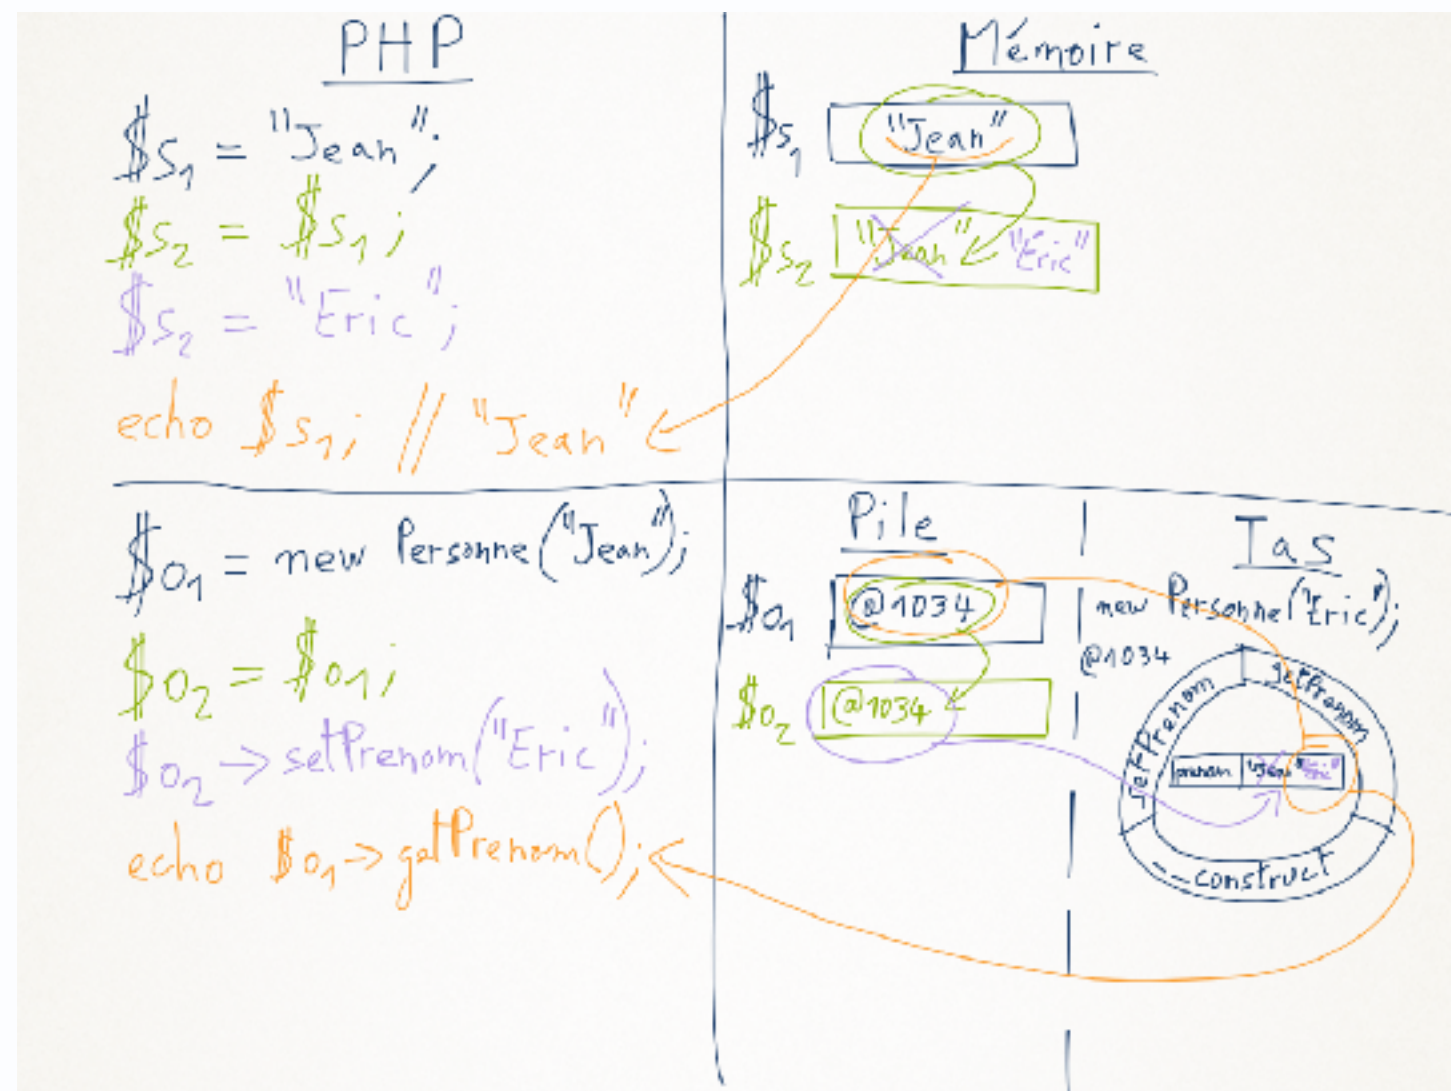 PHP
$s1 = "Jean";
$s2 = $s1;
$s2 = "Eric";
echo $s1; // "Jean"
Mémoire
$s1 "Jean"
$s2 "Jean" "Eric"
$o1 = new Personne("Jean");
$o2 = $o1;
$o2 -> setPrenom("Eric");
echo $o1 -> getPrenom();
Pile
$o1 @1034
$o2 @1034
Tas
new Personne("Eric");
@1034
setPrenom
getPrenom
prenom "Jean" "Eric"
__construct